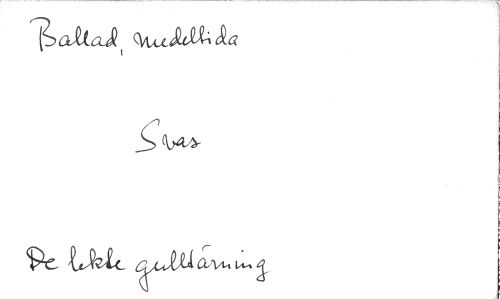 Ballad, medeltida
Svar
De lekte gulltärning